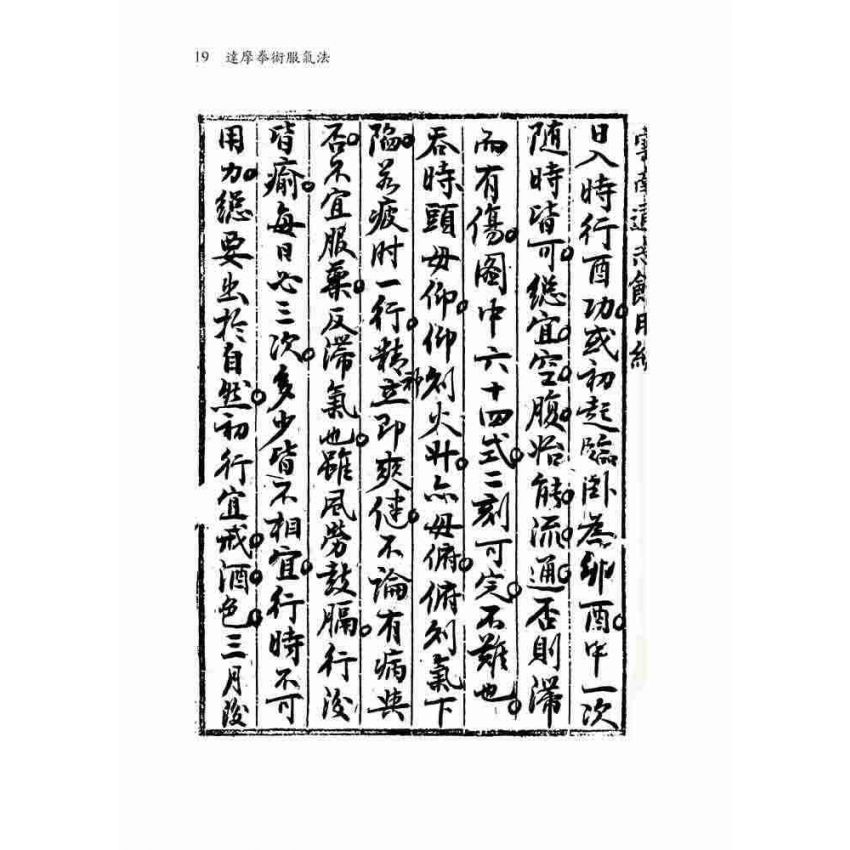 19 達摩拳術服氣法
雲南通志館用紙
日入時行酉功。或初起臨卧為卯酉。中一次
隨時皆可。總宜。空。腹。始能。流。通。否則滯
而有傷。圖中六十四式。二刻可完。不難也。
吞時頭毋仰。仰則火升。亦毋俯。俯則氣下
陷。若疲时一行。精神立即爽健。不論有病與
否。不宜服藥。反滯氣也。雖風勞鼓膈。行後
皆瘉。每日必三次。多少皆不相宜。行時不可
用力。總要出於自然。初行宜戒。酒。色。三月後